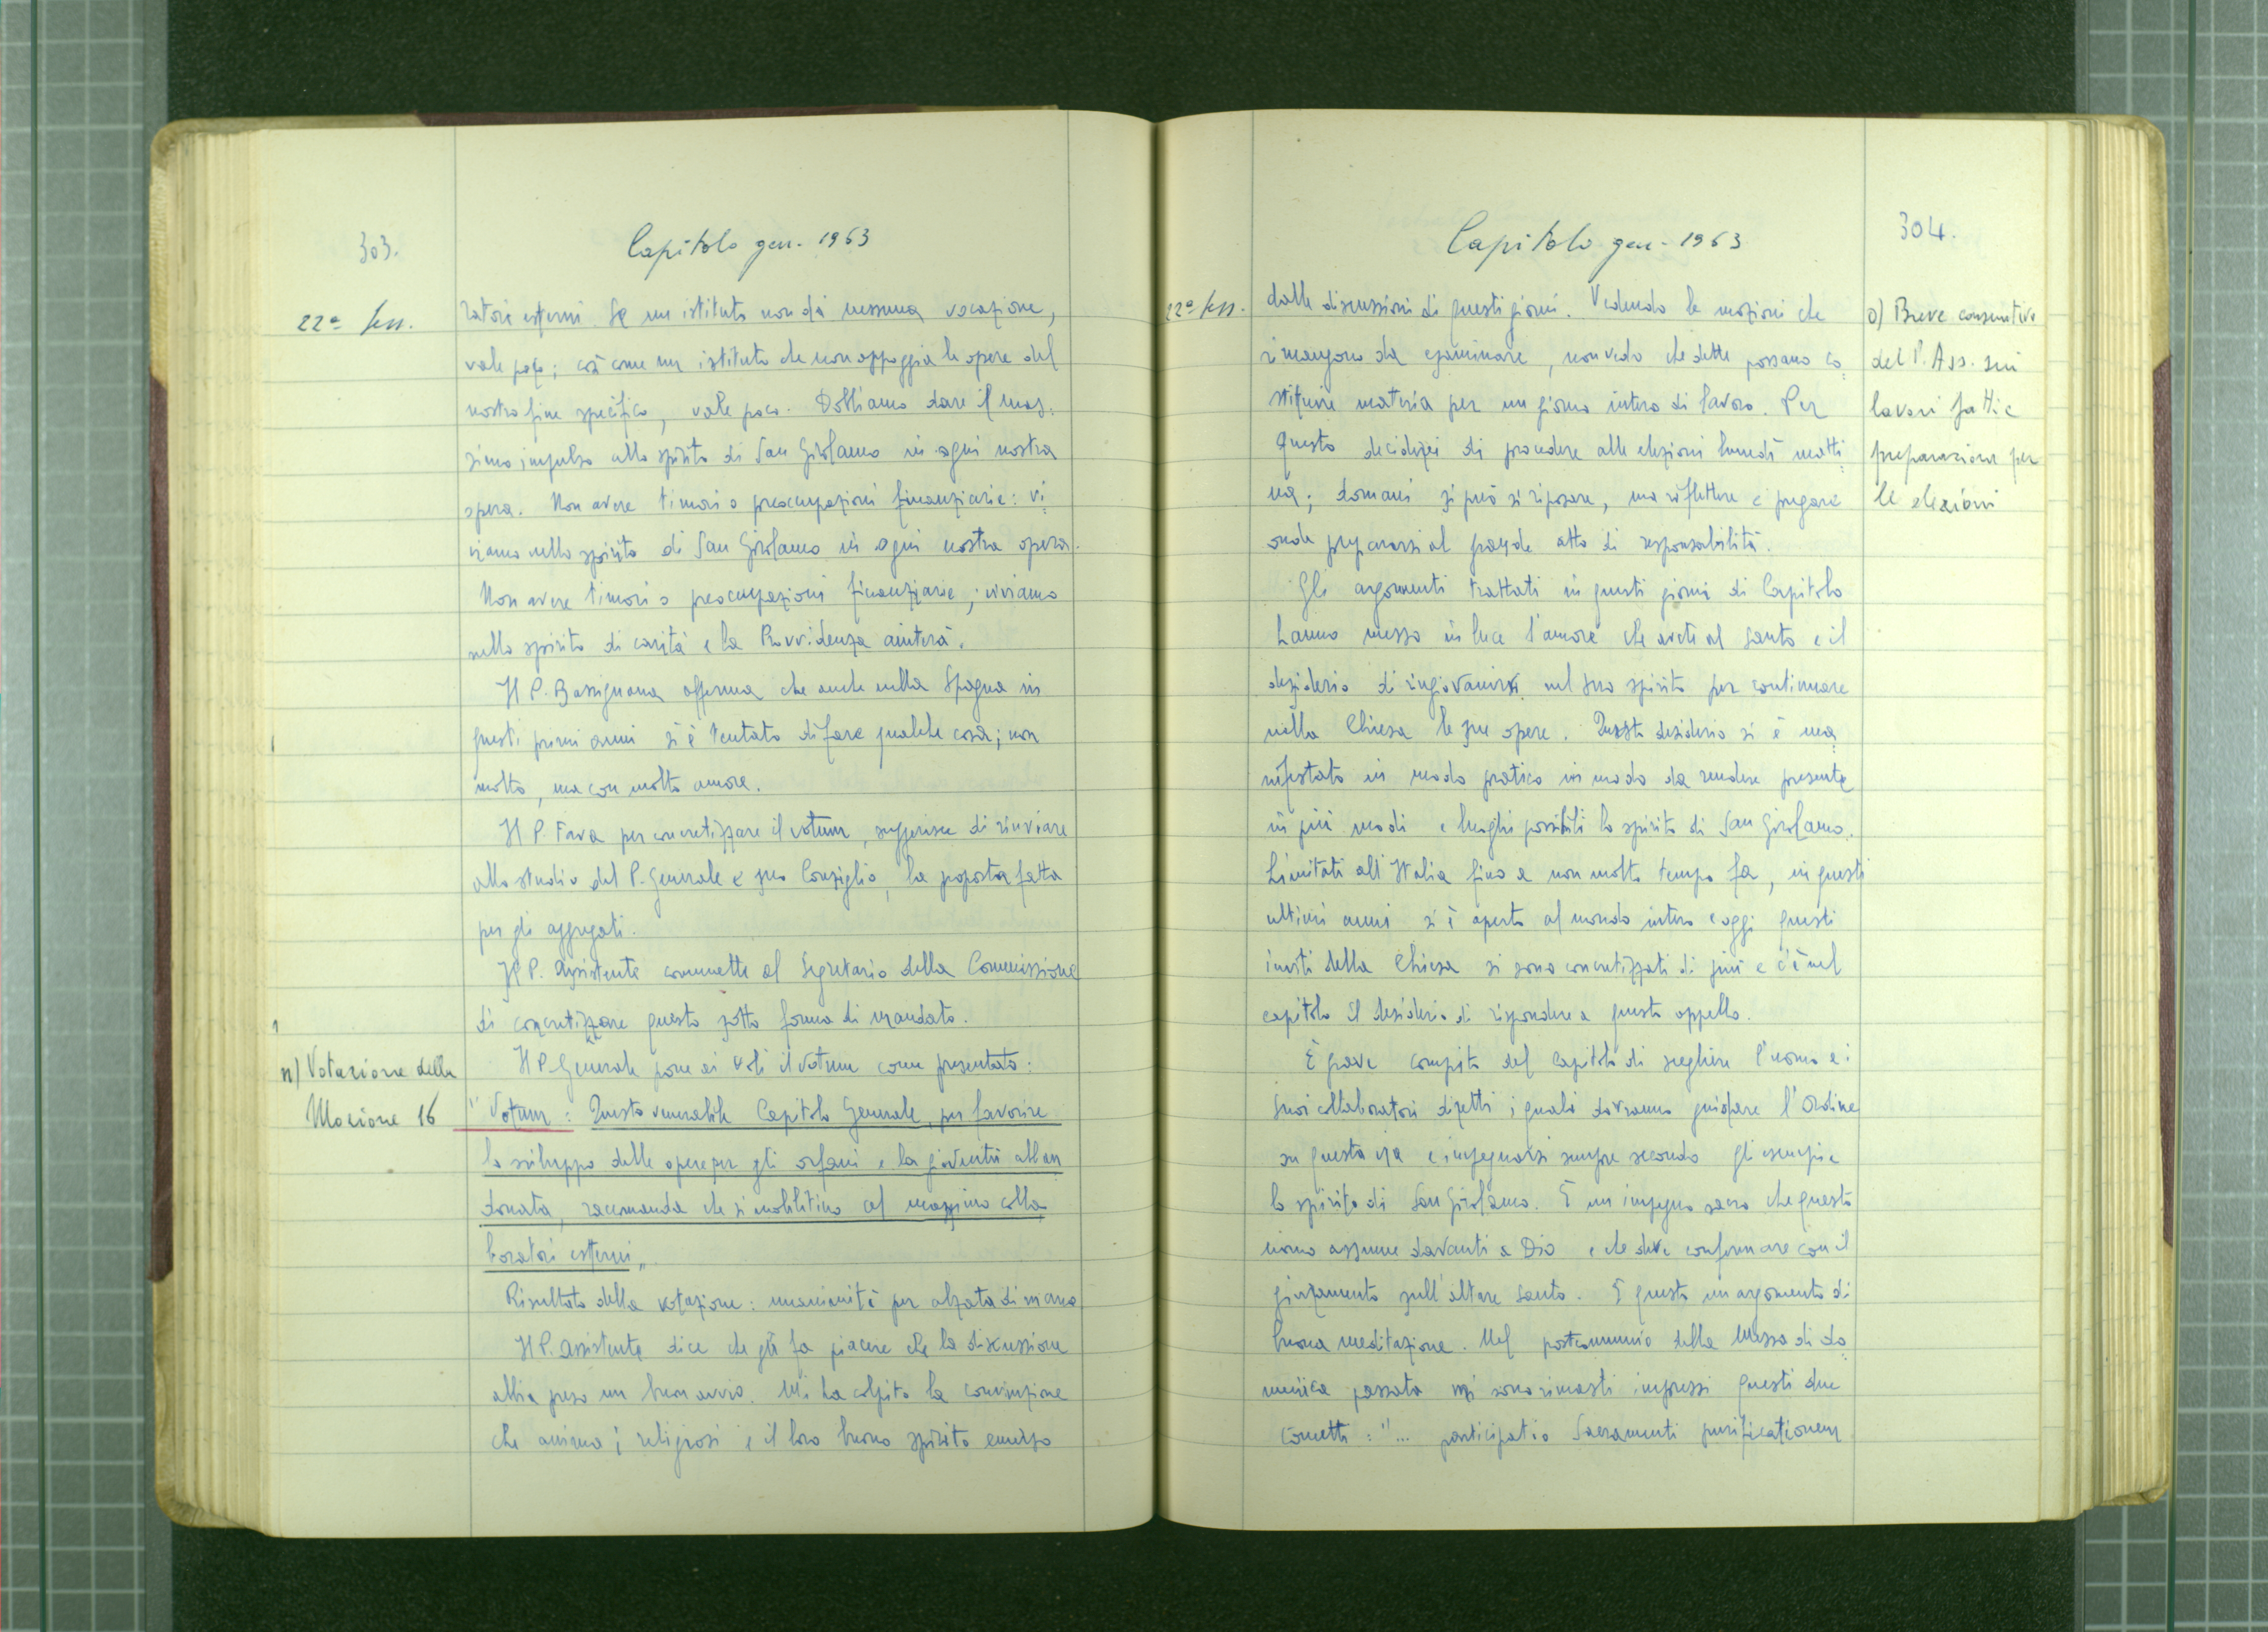 303.
Capitolo gen. 1963
22ª sess.
ratori esterni. Se un istituto non dà nessuna vocazione,
vale poco; così come un istituto che non appoggia le opere del
nostro fine specifico, vale poco. Dobbiamo dare il mas=
simo impulso allo spirito di San Girolamo in ogni nostra
opera. Non avere timori o preoccupazioni finanziarie: vi=
viamo nello spirito di San Girolamo in ogni nostra opera.
Non avere timori o preoccupazioni finanziarie; viviamo
nello spirito di carità e la Provvidenza aiuterà.
Il P. Bassignana afferma che anche nella Spagna in
questi primi anni si è tentato di fare qualche cosa; non
molto, ma con molto amore.
Il P. Fava per concretizzare il votum, suggerisce di rinviare
allo studio del P. Generale e suo Consiglio, la proposta fatta
per gli aggregati.
Il P. Assistente commette al Segretario della Commissione
di concretizzare questo sotto forma di mandato.
n) Votazione della
Mozione 16
Il P. Generale pone ai voti il votum come presentato:
"Votum: Questo venerabile Capitolo Generale, per favorire
lo sviluppo delle opere per gli orfani e la gioventù abban
donata, raccomanda che si mobilitino al massimo colla
boratori esterni"
Risultato della votazione: unanimità per alzata di mano
Il P. Assistente dice che gli fa piacere che la discussione
abbia preso un buon avvio. Mi ha colpito la convinzione
che anima i religiosi e il loro buono spirito emerso
Capitolo gen. 1963
304.
22ª sess.
dalle discussioni di questi giorni. Vedendo le mozioni che
rimangono da esaminare, non vedo che dette possano co=
stituire materia per un giorno intero di lavoro. Per
questo deciderei di procedere alle elezioni lunedì matti=
na; domani si può sì riposare, ma riflettere e pregare
onde prepararsi al grande atto di responsabilità.
o) Breve consuntivo
del P. Ass. sui
lavori fatti e
preparazione per
le elezioni
Gli argomenti trattati in questi giorni di Capitolo
hanno messo in luce l'amore che avete al Santo e il
desiderio di ringiovanirsi nel suo spirito per continuare
nella Chiesa le sue opere. Questo desiderio si è ma=
nifestato in modo pratico in modo da rendere presente
in più modi e luoghi possibili lo spirito di San Girolamo.
Limitati all'Italia fino a non molto tempo fa, in questi
ultimi anni si è aperto al mondo intero e oggi questi
inviti della Chiesa si sono concretizzati di più e c'è nel
capitolo il desiderio di rispondere a questo appello.
È grave compito del capitolo di scegliere l'uomo e i
suoi collaboratori diretti, i quali dovranno guidare l'Ordine
su questa via e impegnarsi sempre secondo gli esempi e
lo spirito di San Girolamo. È un impegno sacro che questo
uomo assume davanti a Dio e che deve confermare con il
giuramento sull'altare santo. È questo un argomento di
buona meditazione. Nel postcommunio della Messa di do=
menica passata mi sono rimasti impressi questi due
concetti: "... participatio Sacramenti purificationem